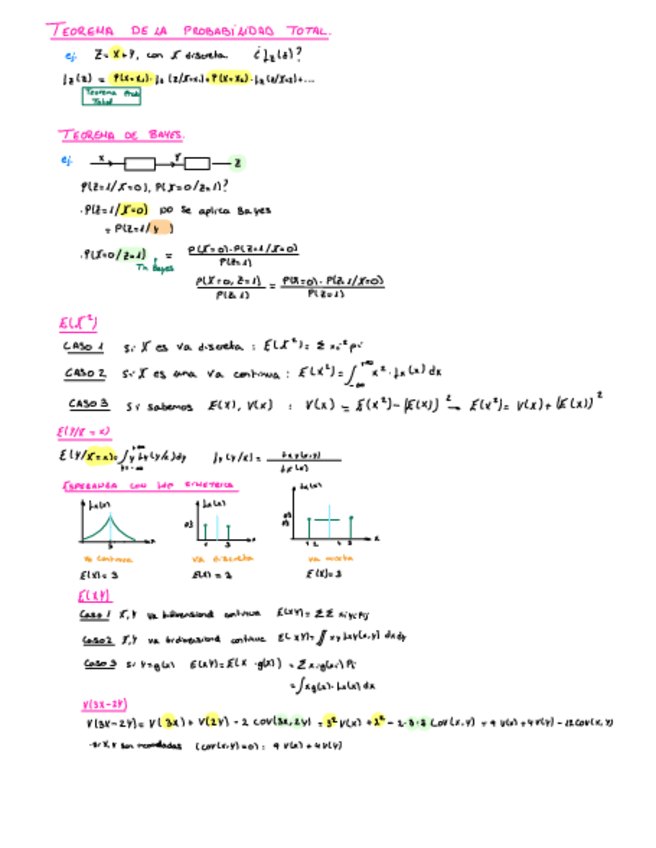 TEOREMA DE LA PROBABILIDAD TOTAL.
ej. Z= X+Y, con X discreta. ¿fz(z)?
fz(z) = P(X=x1)· fz (z/X=x1)+P(X=x2)· fz(z/X=x2)+...
Teorema Prob
Total
TEOREMA DE BAYES.
ej. X Y Z
P(Z=1/X=0), P(X=0/Z=1)?
·P(Z=1/X=0) no se aplica Bayes
= P(Z=1/Y )
·P(X=0/Z=1) = P(X=0)·P(Z=1/X=0)
P(Z=1)
Tm Bayes
P(X=0, Z=1) = P(X=0)· P(Z=1/X=0)
P(Z=1) P(Z=1)
E(X²)
CASO 1 Si X es va discreta : E(X²)= Σ xi²pi
CASO 2 Si X es una va continua : E(X²)=∫-∞+∞ x²· fx(x) dx
CASO 3 Si sabemos E(X), V(X) : V(X) = E(X²)-(E(X))² → E(X²)= V(X)+(E(X))²
E(Y/X = x)
E(Y/X=x)=∫y=-∞+∞ y fy(y/x)dy fy(y/x)= fxy(x,y)
fx(x)
ESPERANZA CON fdp SIMÉTRICA
fx(x) fx(x) fx(x)
3 x 1 3 x 1 2 4 5 x
va continua va discreta va mixta
E(X)=3 E(X)=2 E(X)=3
E(XY)
Caso 1 X,Y va bidimensional continua E(XY)= ΣΣ xiyjPij
Caso 2 X,Y va bidimensional continua E(XY)=∫∫ xy fxy(x,y) dxdy
Caso 3 si Y=g(x) E(XY)=E(X ·g(X)) = Σxi·g(xi) Pi
=∫xg(x)·fx(x) dx
V(3X-2Y)
V(3X-2Y)= V(3X)+ V(2Y) - 2 COV(3X,2Y) = 3² V(X) +2² - 2·3·2 COV(X,Y) = 9 V(X)+4V(Y) -12COV(X,Y)
·si X,Y son incorreladas (COV(X,Y)=0): 9 V(X)+4V(Y)